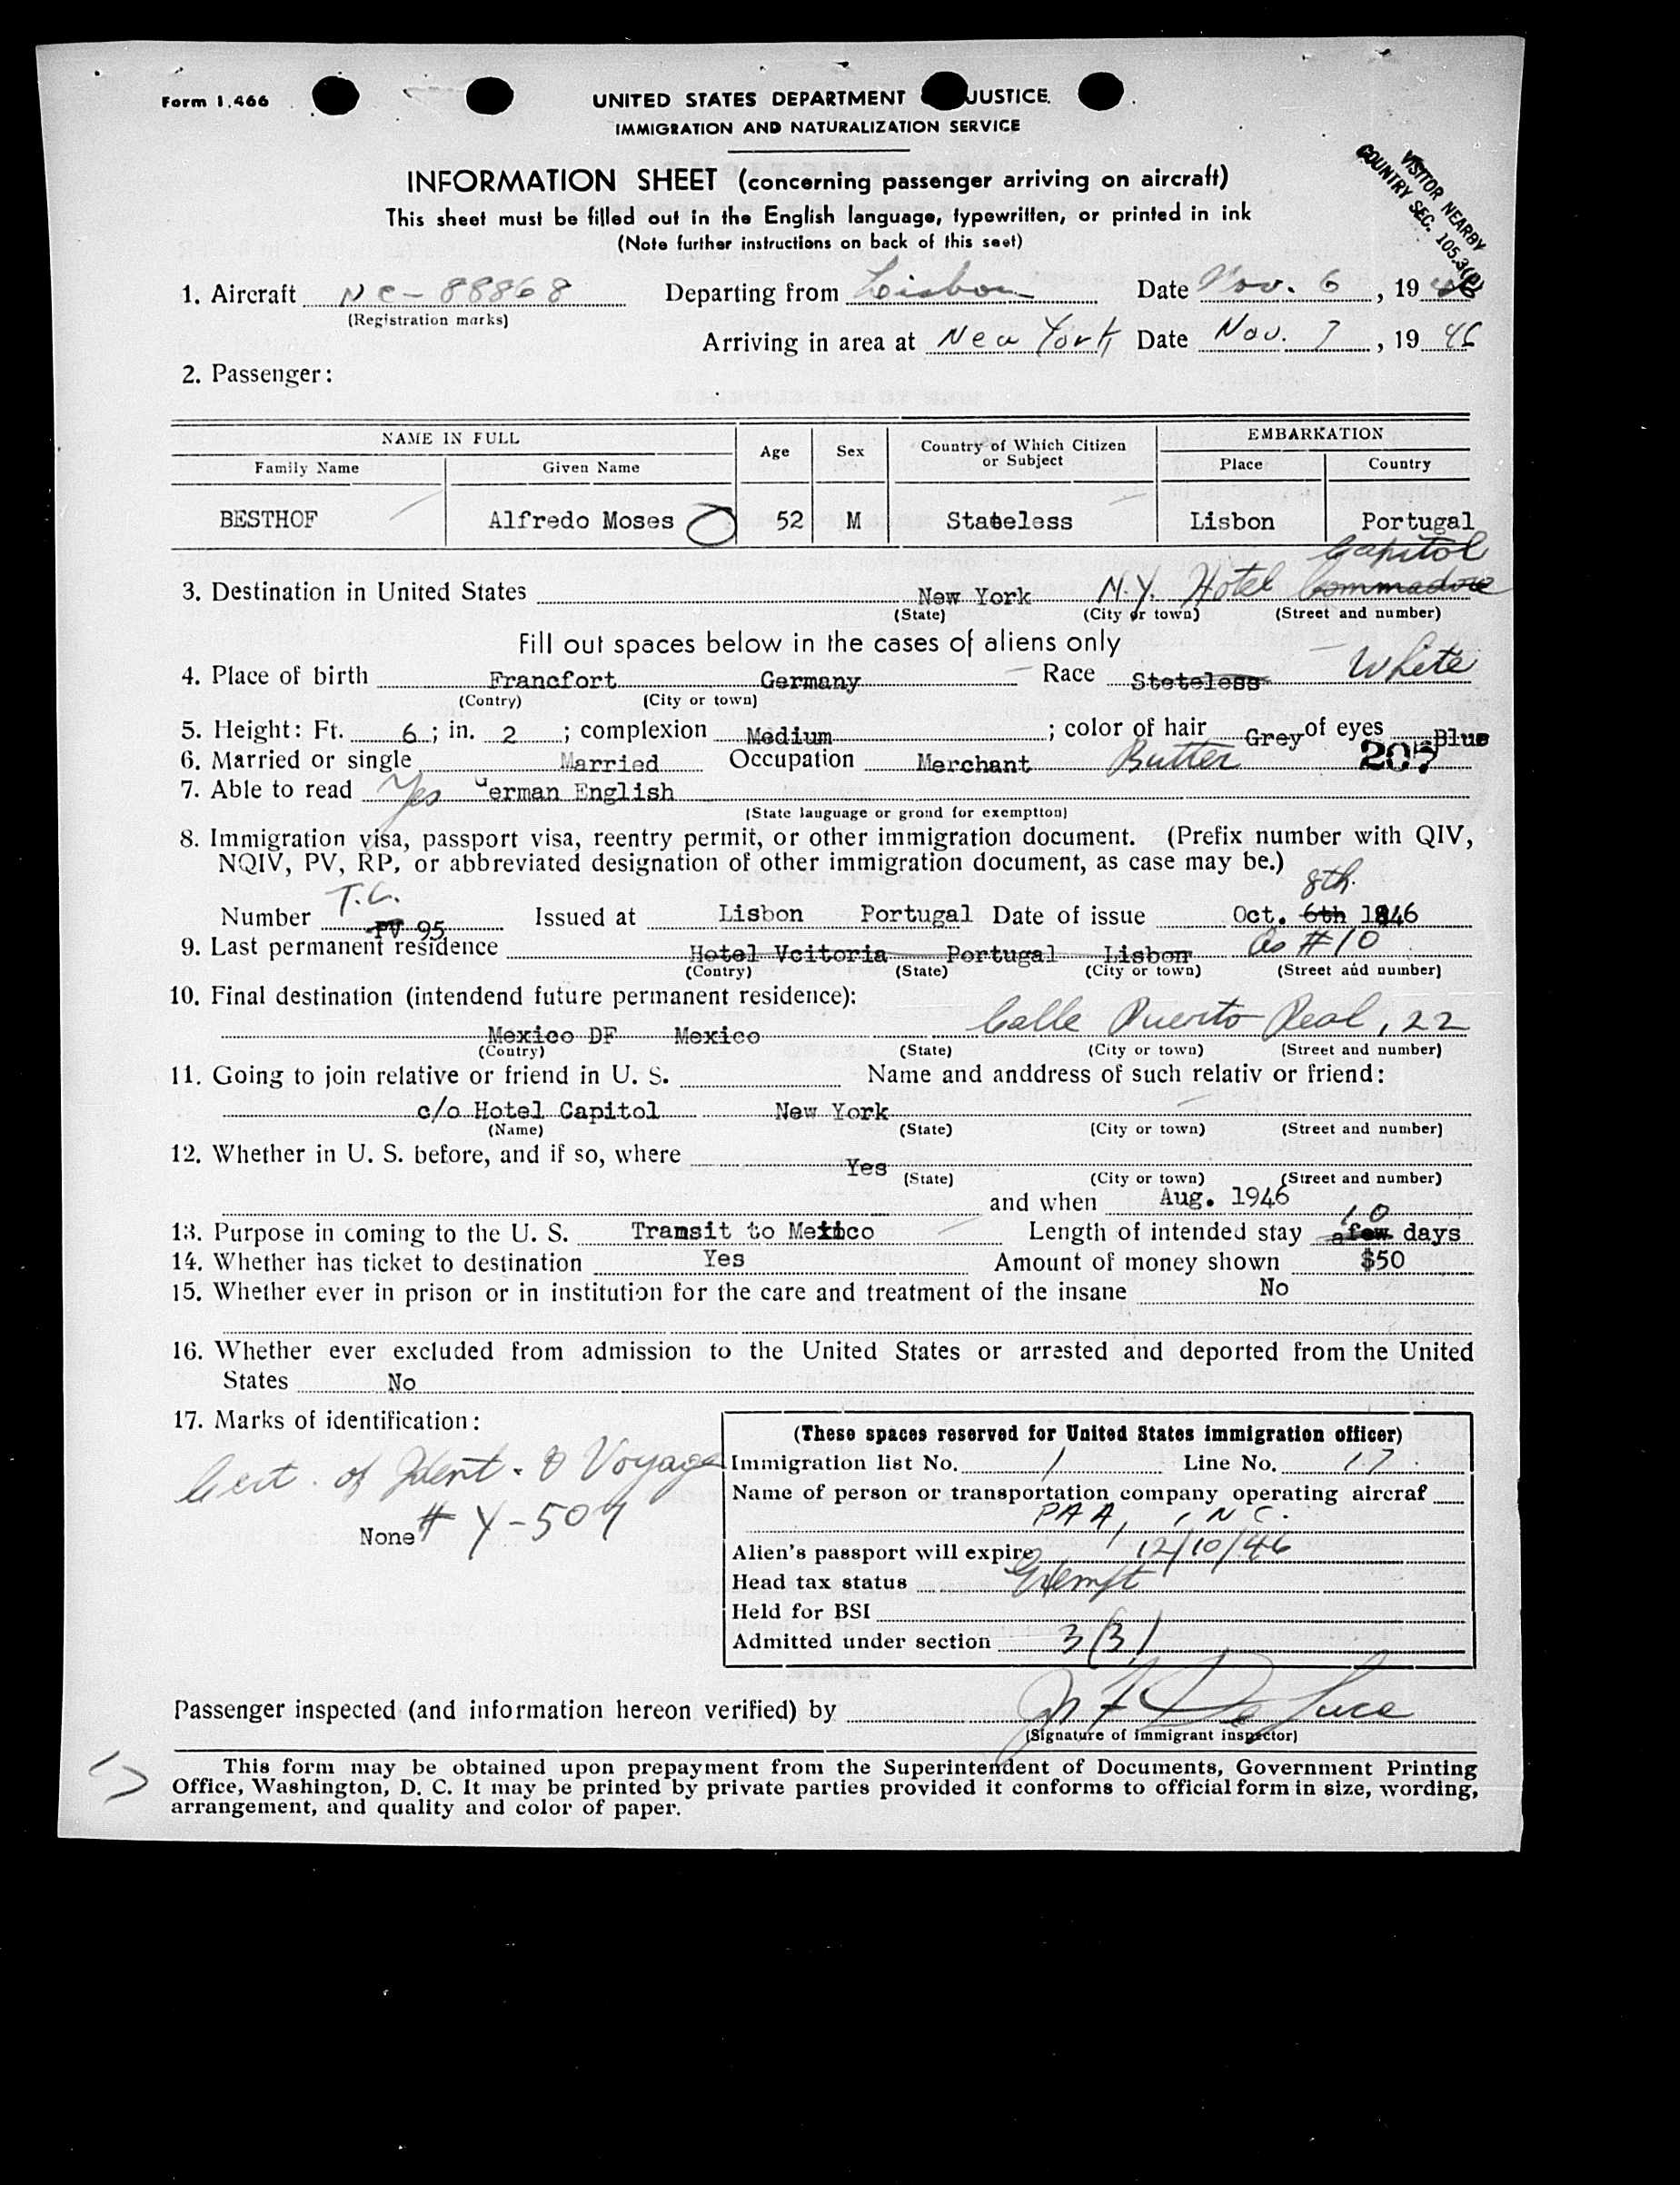 Form I.466
UNITED STATES DEPARTMENT JUSTICE.
IMMIGRATION AND NATURALIZATION SERVICE
VISITOR NEARBY
COUNTRY SEC. 105.3(B)
INFORMATION SHEET (concerning passenger arriving on aircraft)
This sheet must be filled out in the English language, typewritten, or printed in ink
(Note further instructions on back of this seet)
1. Aircraft NC-88868 Departing from Lisbon Date Nov. 6, 1946
(Registration marks)
Arriving in area at New York Date Nov. 7, 1946
2. Passenger:
NAME IN FULL Age Sex Country of Which Citizen or Subject EMBARKATION
Family Name Given Name Place Country
BESTHOF Alfredo Moses 52 M Stateless Lisbon Portugal
Capitol
3. Destination in United States New York N.Y. Hotel Commadore
(State) (City or town) (Street and number)
Fill out spaces below in the cases of aliens only
4. Place of birth Francfort Germany Race Steteless White
(Contry) (City or town)
5. Height: Ft. 6; in. 2; complexion Medium; color of hair Grey of eyes Blue
6. Married or single Married Occupation Merchant Butter
7. Able to read Yes German English
(State language or grond for exemption)
8. Immigration visa, passport visa, reentry permit, or other immigration document. (Prefix number with QIV,
NQIV, PV, RP, or abbreviated designation of other immigration document, as case may be.)
T.C. 8th.
Number PV 95 Issued at Lisbon Portugal Date of issue Oct. 6th 1946
9. Last permanent residence Hotel Vcitoria Portugal Lisbon As #10
(Contry) (State) (City or town) (Street and number)
10. Final destination (intendend future permanent residence):
Mexico DF Mexico Calle Puerto Real, 22
(Contry) (State) (City or town) (Street and number)
11. Going to join relative or friend in U. S. Name and anddress of such relativ or friend:
c/o Hotel Capitol New York
(Name) (State) (City or town) (Street and number)
12. Whether in U. S. before, and if so, where Yes
(State) (City or town) (Street and number)
and when Aug. 1946
10
13. Purpose in coming to the U. S. Transit to Mexico Length of intended stay a few days
14. Whether has ticket to destination Yes Amount of money shown $50
15. Whether ever in prison or in institution for the care and treatment of the insane No
16. Whether ever excluded from admission to the United States or arrested and deported from the United
States No
17. Marks of identification:
Cert. of Ident. & Voyage
# Y-507
None
(These spaces reserved for United States immigration officer)
Immigration list No. 1 Line No. 17
Name of person or transportation company operating aircraf
PAA, INC.
Alien's passport will expire 12/10/46
Head tax status Exempt
Held for BSI
Admitted under section 3(3)
Passenger inspected (and information hereon verified) by
(Signature of immigrant inspector)
This form may be obtained upon prepayment from the Superintendent of Documents, Government Printing
Office, Washington, D. C. It may be printed by private parties provided it conforms to official form in size, wording,
arrangement, and quality and color of paper.